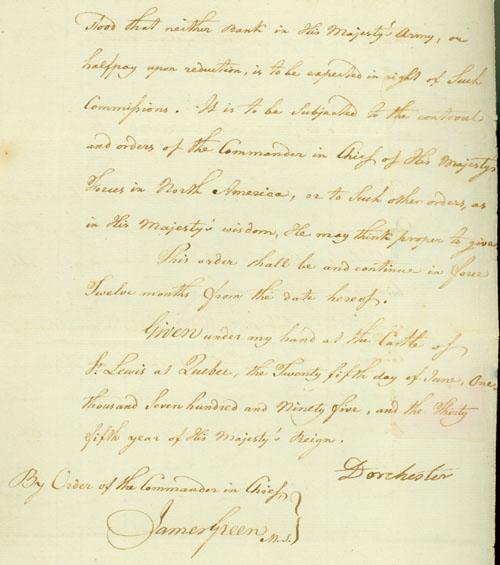 stood that neither Rank in His Majesty's Army, or
halfpay upon reduction, is to be expected in right of Such
Commissions. It is to be Subjected to the controul
and orders of the Commander in Chief of His Majestys
Forces in North America, or to Such other orders, as
in His Majesty's wisdom, He may think proper to give
This order shall be and continue in force
Twelve months from the date hereof.
Given under my hand at the Castle of
St. Lewis at Quebec, the Twenty fifth day of June, One
thousand Seven hundred and Ninety five, and the Thirty
fifth year of His Majesty's Reign.
Dorchester
By Order of the Commander in Chief
James Green M.S.